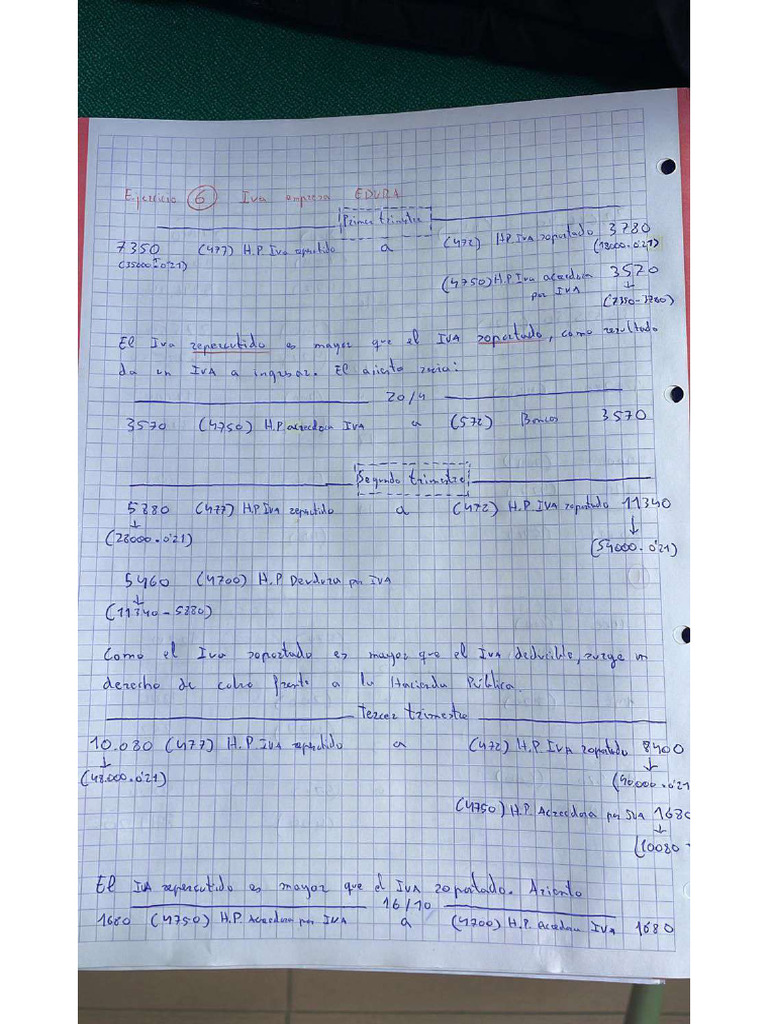 Ejercicio 6 Iva empresa EDURA
Primer trimestre
7350 (477) H.P. Iva repectido a (472) H.P IVA soportado 3780
(35000.0'21) (18000.0'21)
(4750) H.P Iva acreedora por IVA 3570
(7350-3780)
El Iva repercutido es mayor que el IVA soportado, como resultado
da un IVA a ingresar. El asiento sería:
20/4
3570 (4750) H.P. acreedora IVA a (572) Bancos 3570
Segundo trimestre
5880 (477) H.P Iva repectido a (472) H.P IVA soportado 11340
(28000.0'21) (54000.0'21)
5460 (4700) H.P Deudora por IVA
(11340-5880)
Como el Iva soportado es mayor que el IVA deducible, surge un
derecho de cobro frente a la Hacienda Pública.
Tercer trimestre
10.080 (477) H.P. IVA repectido a (472) H.P. IVA soportado 8400
(48.000.0'21) (40000.0'21
(4750) H.P. Acreedora por IVA 1680
(10080-
El IVA repercutido es mayor que el IVA soportado. Asiento
16/10
1680 (4750) H.P. Acreedora por IVA a (4700) H.P. Acreedora IVA 1680